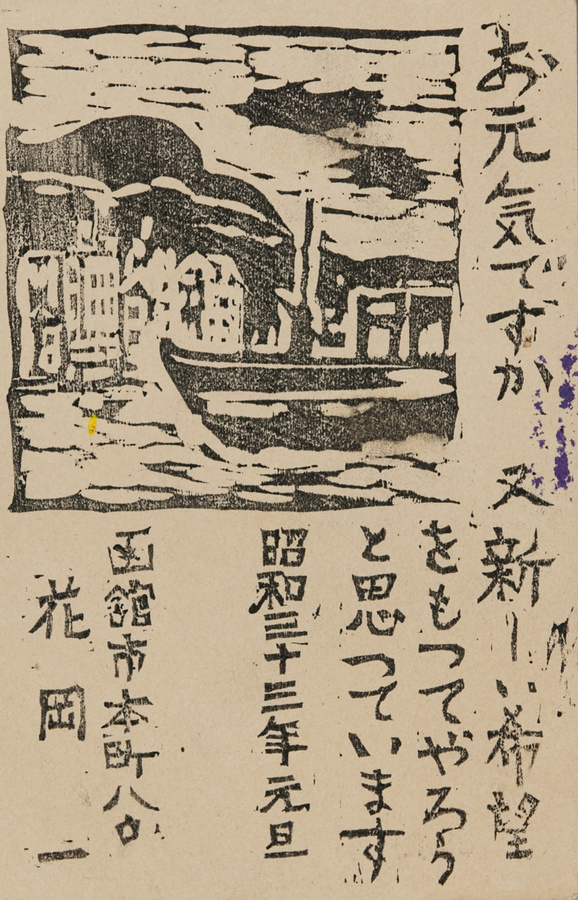 お元気ですか 又新しい希望
をもつてやろう
と思つています
昭和三十三年元旦
函館市本町八〇
花岡 一